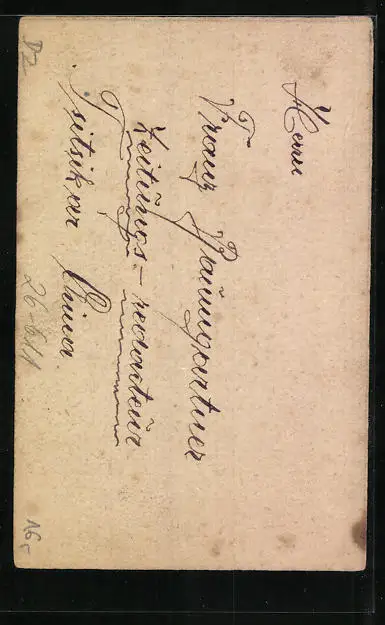 Herrn
Franz Baumgartner
Zeitungs-redacteur
Tsitsikar China.
DZ
26-611
16,-